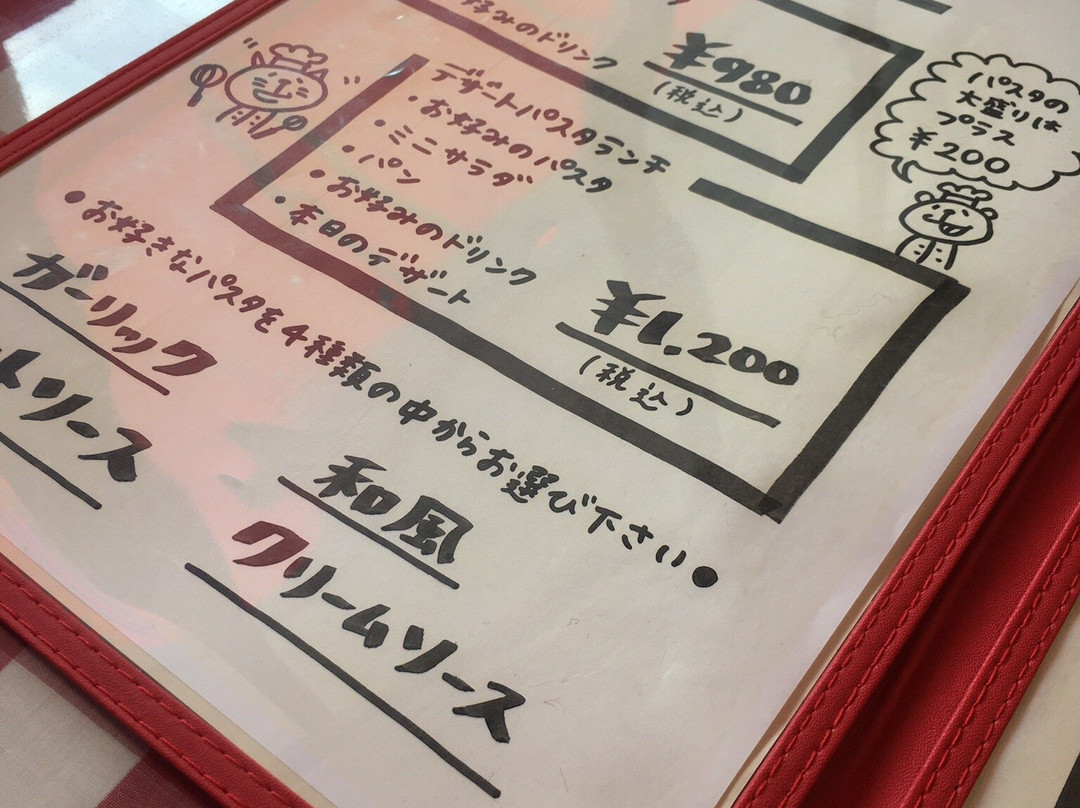 好みのドリンク
¥980
(税込)
パスタの
大盛りは
プラス
¥200
デザートパスタランチ
・お好みのパスタ
・ミニサラダ
・パン
・お好みのドリンク
・本日のデザート
¥1,200
(税込)
●お好きなパスタを4種類の中からお選び下さい●
ガーリック
トソース
和風
クリームソース